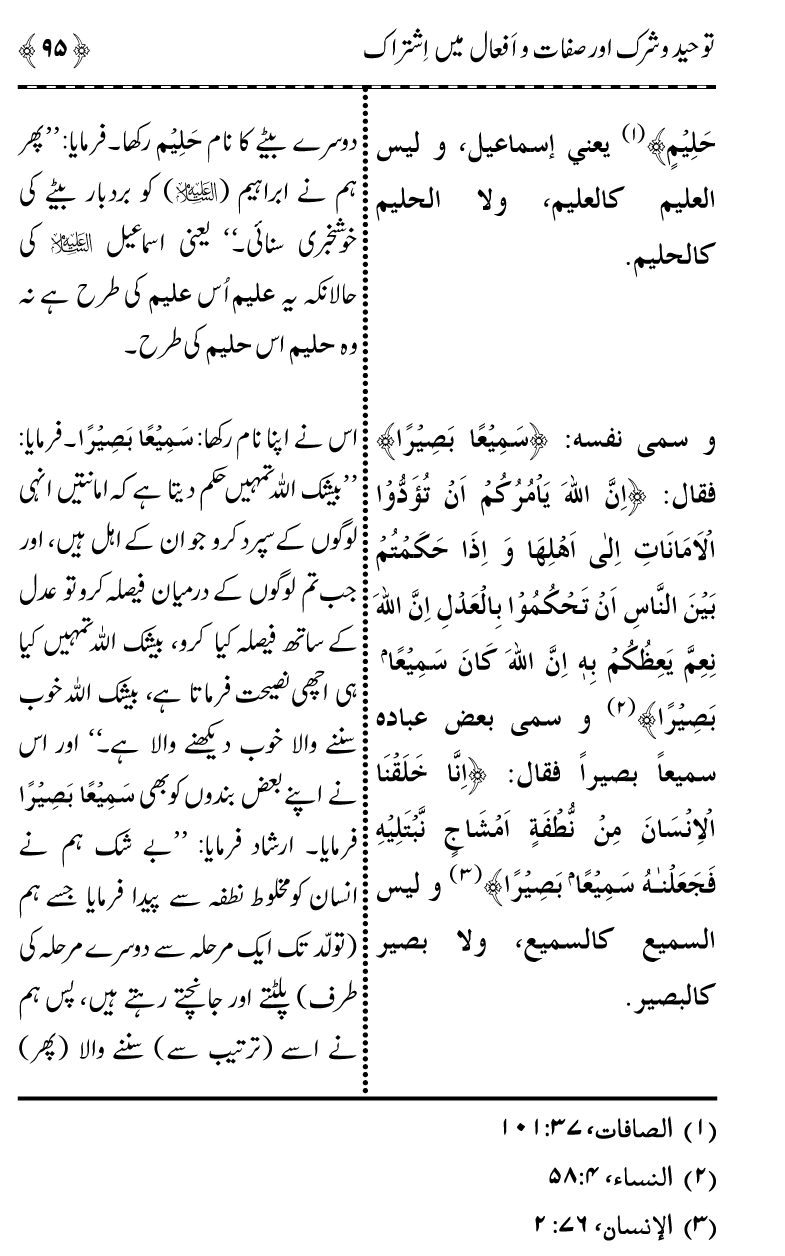 توحید و شرک اور صفات و اَفعال میں اِشتراک
﴿۹۵﴾
حَلِيْمٍ﴾(۱) يعني إسماعيل، و ليس
العليم كالعليم، ولا الحليم
كالحليم.
و سمى نفسه: ﴿سَمِيْعًا بَصِيْرًا﴾
فقال: ﴿اِنَّ اللهَ يَاْمُرُكُمْ اَنْ تُؤَدُّوْا
الْاَمَانَاتِ اِلٰى اَهْلِهَا وَ اِذَا حَكَمْتُمْ
بَيْنَ النَّاسِ اَنْ تَحْكُمُوْا بِالْعَدْلِ اِنَّ اللهَ
نِعِمَّ يَعِظُكُمْ بِهٖ اِنَّ اللهَ كَانَ سَمِيْعًاۢ
بَصِيْرًا﴾(۲) و سمى بعض عباده
سميعاً بصيراً فقال: ﴿اِنَّا خَلَقْنَا
الْاِنْسَانَ مِنْ نُّطْفَةٍ اَمْشَاجٍ نَّبْتَلِيْهِ
فَجَعَلْنٰهُ سَمِيْعًاۢ بَصِيْرًا﴾(۳) و ليس
السميع كالسميع، ولا بصير
كالبصير.
دوسرے بیٹے کا نام حَلِيْم رکھا۔ فرمایا: ’’پھر
ہم نے ابراہیم (علیہ السلام) کو بردبار بیٹے کی
خوشخبری سنائی۔‘‘ یعنی اسماعیل علیہ السلام کی
حالانکہ یہ علیم اُس علیم کی طرح ہے نہ
وہ حلیم اس حلیم کی طرح۔
اس نے اپنا نام رکھا: سَمِيْعًا بَصِيْرًا۔ فرمایا:
’’بیشک اللہ تمہیں حکم دیتا ہے کہ امانتیں انہی
لوگوں کے سپرد کرو جو ان کے اہل ہیں، اور
جب تم لوگوں کے درمیان فیصلہ کرو تو عدل
کے ساتھ فیصلہ کیا کرو، بیشک اللہ تمہیں کیا
ہی اچھی نصیحت فرماتا ہے، بیشک اللہ خوب
سننے والا خوب دیکھنے والا ہے۔‘‘ اور اس
نے اپنے بعض بندوں کو بھی سَمِيْعًا بَصِيْرًا
فرمایا۔ ارشاد فرمایا: ’’بے شک ہم نے
انسان کو مخلوط نطفہ سے پیدا فرمایا جسے ہم
(تولّد تک ایک مرحلہ سے دوسرے مرحلہ کی
طرف) پلٹتے اور جانچتے رہتے ہیں، پس ہم
نے اسے (ترتیب سے) سننے والا (پھر)
(۱) الصافات، ۳۷:۱۰۱
(۲) النساء، ۴:۵۸
(۳) الإنسان، ۷۶:۲